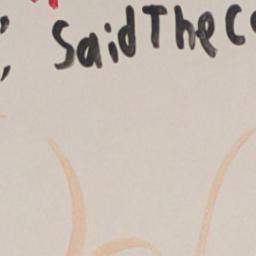 Said The